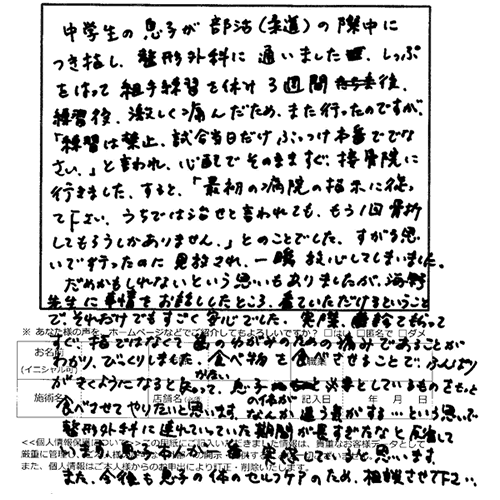 中学生の息子が部活(柔道)の際中に
つき指し、整形外科に通いました。しっぷ
をはって組手練習を休け3週間後、
練習後、激しく痛んだため、また行ったのですが、
「練習は禁止、試合当日だけぶっつけ本番ででな
さい。」と言われ、心配でそのまますぐ、接骨院に
行きました。すると、「最初の病院の指示に従っ
て下さい。うちでは治せと言われても、もう1回骨折
してもろうしかありません。」とのことでした。すがる思
いで行ったのに見放され、一瞬放心してしまいました。
だめかもしれないという思いもありましたが、海野
先生に事情をお話ししたところ、看ていただけるということ
で、それだけでもすごく安心でした。実際、診てもらって
※ あなた様の声を、ホームページなどでご紹介してもよろしいですか? □はい □匿名で □ダメ
すぐ、指ではなくて歯のゆがみのための痛みであることが
お名前
わかり、びっくりしました。食べ物を食べさせることで、ふんばり
(イニシャル可)
職業
がきくようになると伺って、息子の体が必要としているものをもっと
施術名 店舗名(必須) 記入日 年 月 日
食べさせてやりたいと思います。なんか違う気がする…という思いで
整形外科に連れていっていた期間が長すぎたなと反省して
<<個人情報保護について>>この用紙にご記入いただきました情報は、貴重なお客様データとして
厳重に管理し、
また、個人情報はご本人様からのお申出により訂正・削除いたします。
また、今後も息子の体のセルフケアのため、相談させて下さい。